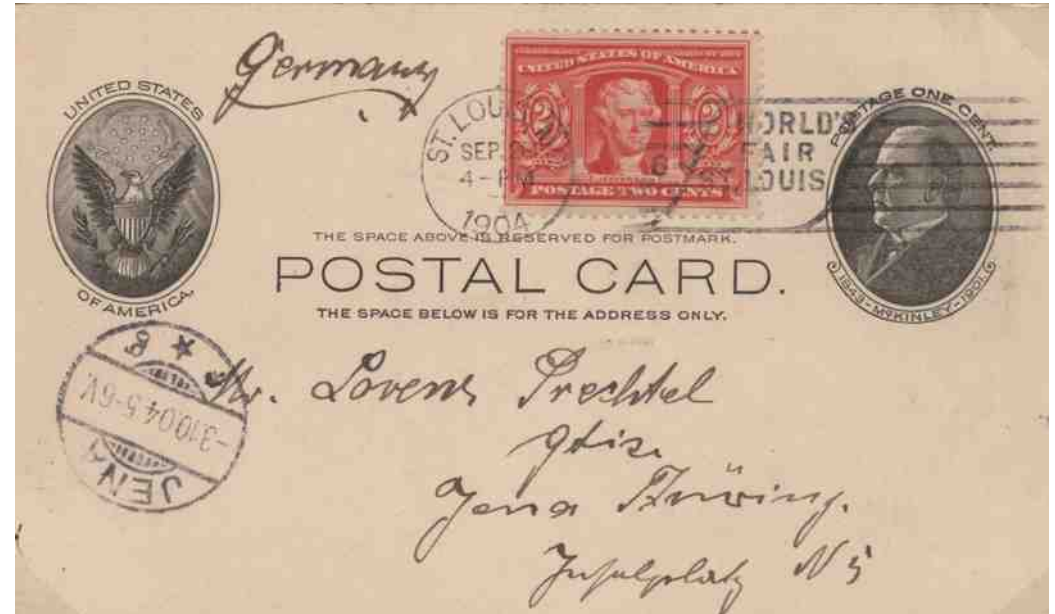 Germany
UNITED STATES
OF AMERICA.
UNITED STATES OF AMERICA
2 2
POSTAGE TWO CENTS
ST. LOUIS, MO
SEP.
4-PM
1904
WORLD'S
FAIR
ST. LOUIS
6
POSTAGE ONE CENT.
1843-McKINLEY-1901
THE SPACE ABOVE IS RESERVED FOR POSTMARK.
POSTAL CARD.
THE SPACE BELOW IS FOR THE ADDRESS ONLY.
JENA
-3.10.04.5-6V.
Mr. Lorenz Prechtel
Jena Thüring.
Inselplatz N 5